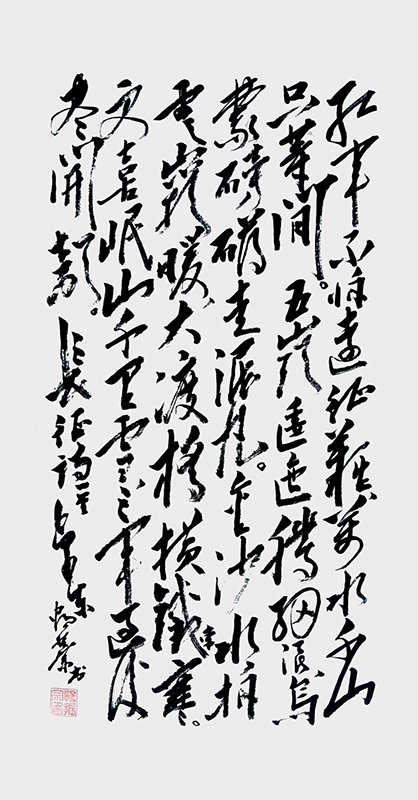 红军不怕远征难万水千山
只等闲。五岭逶迤腾细浪乌
蒙磅礴走泥丸。金沙水拍
云崖暖大渡桥横铁索寒。
更喜岷山千里雪三军过后
尽开颜。长征诗一首 书